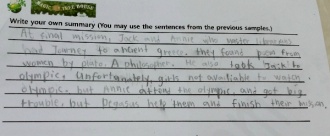 TREE HOUSE
Write your own summary (You may use the sentences from the previous samples.)
At final mission, Jack and Annie who master librarians
had Journey to ancient greece. they found poem from
women by plato. A philosopher. He also took Jack to
olympic. Unfortunately, girls not available to watch
olympic. but Annie attend the olympic. and got big
trouble. but Pegasus help them and finish their mission.